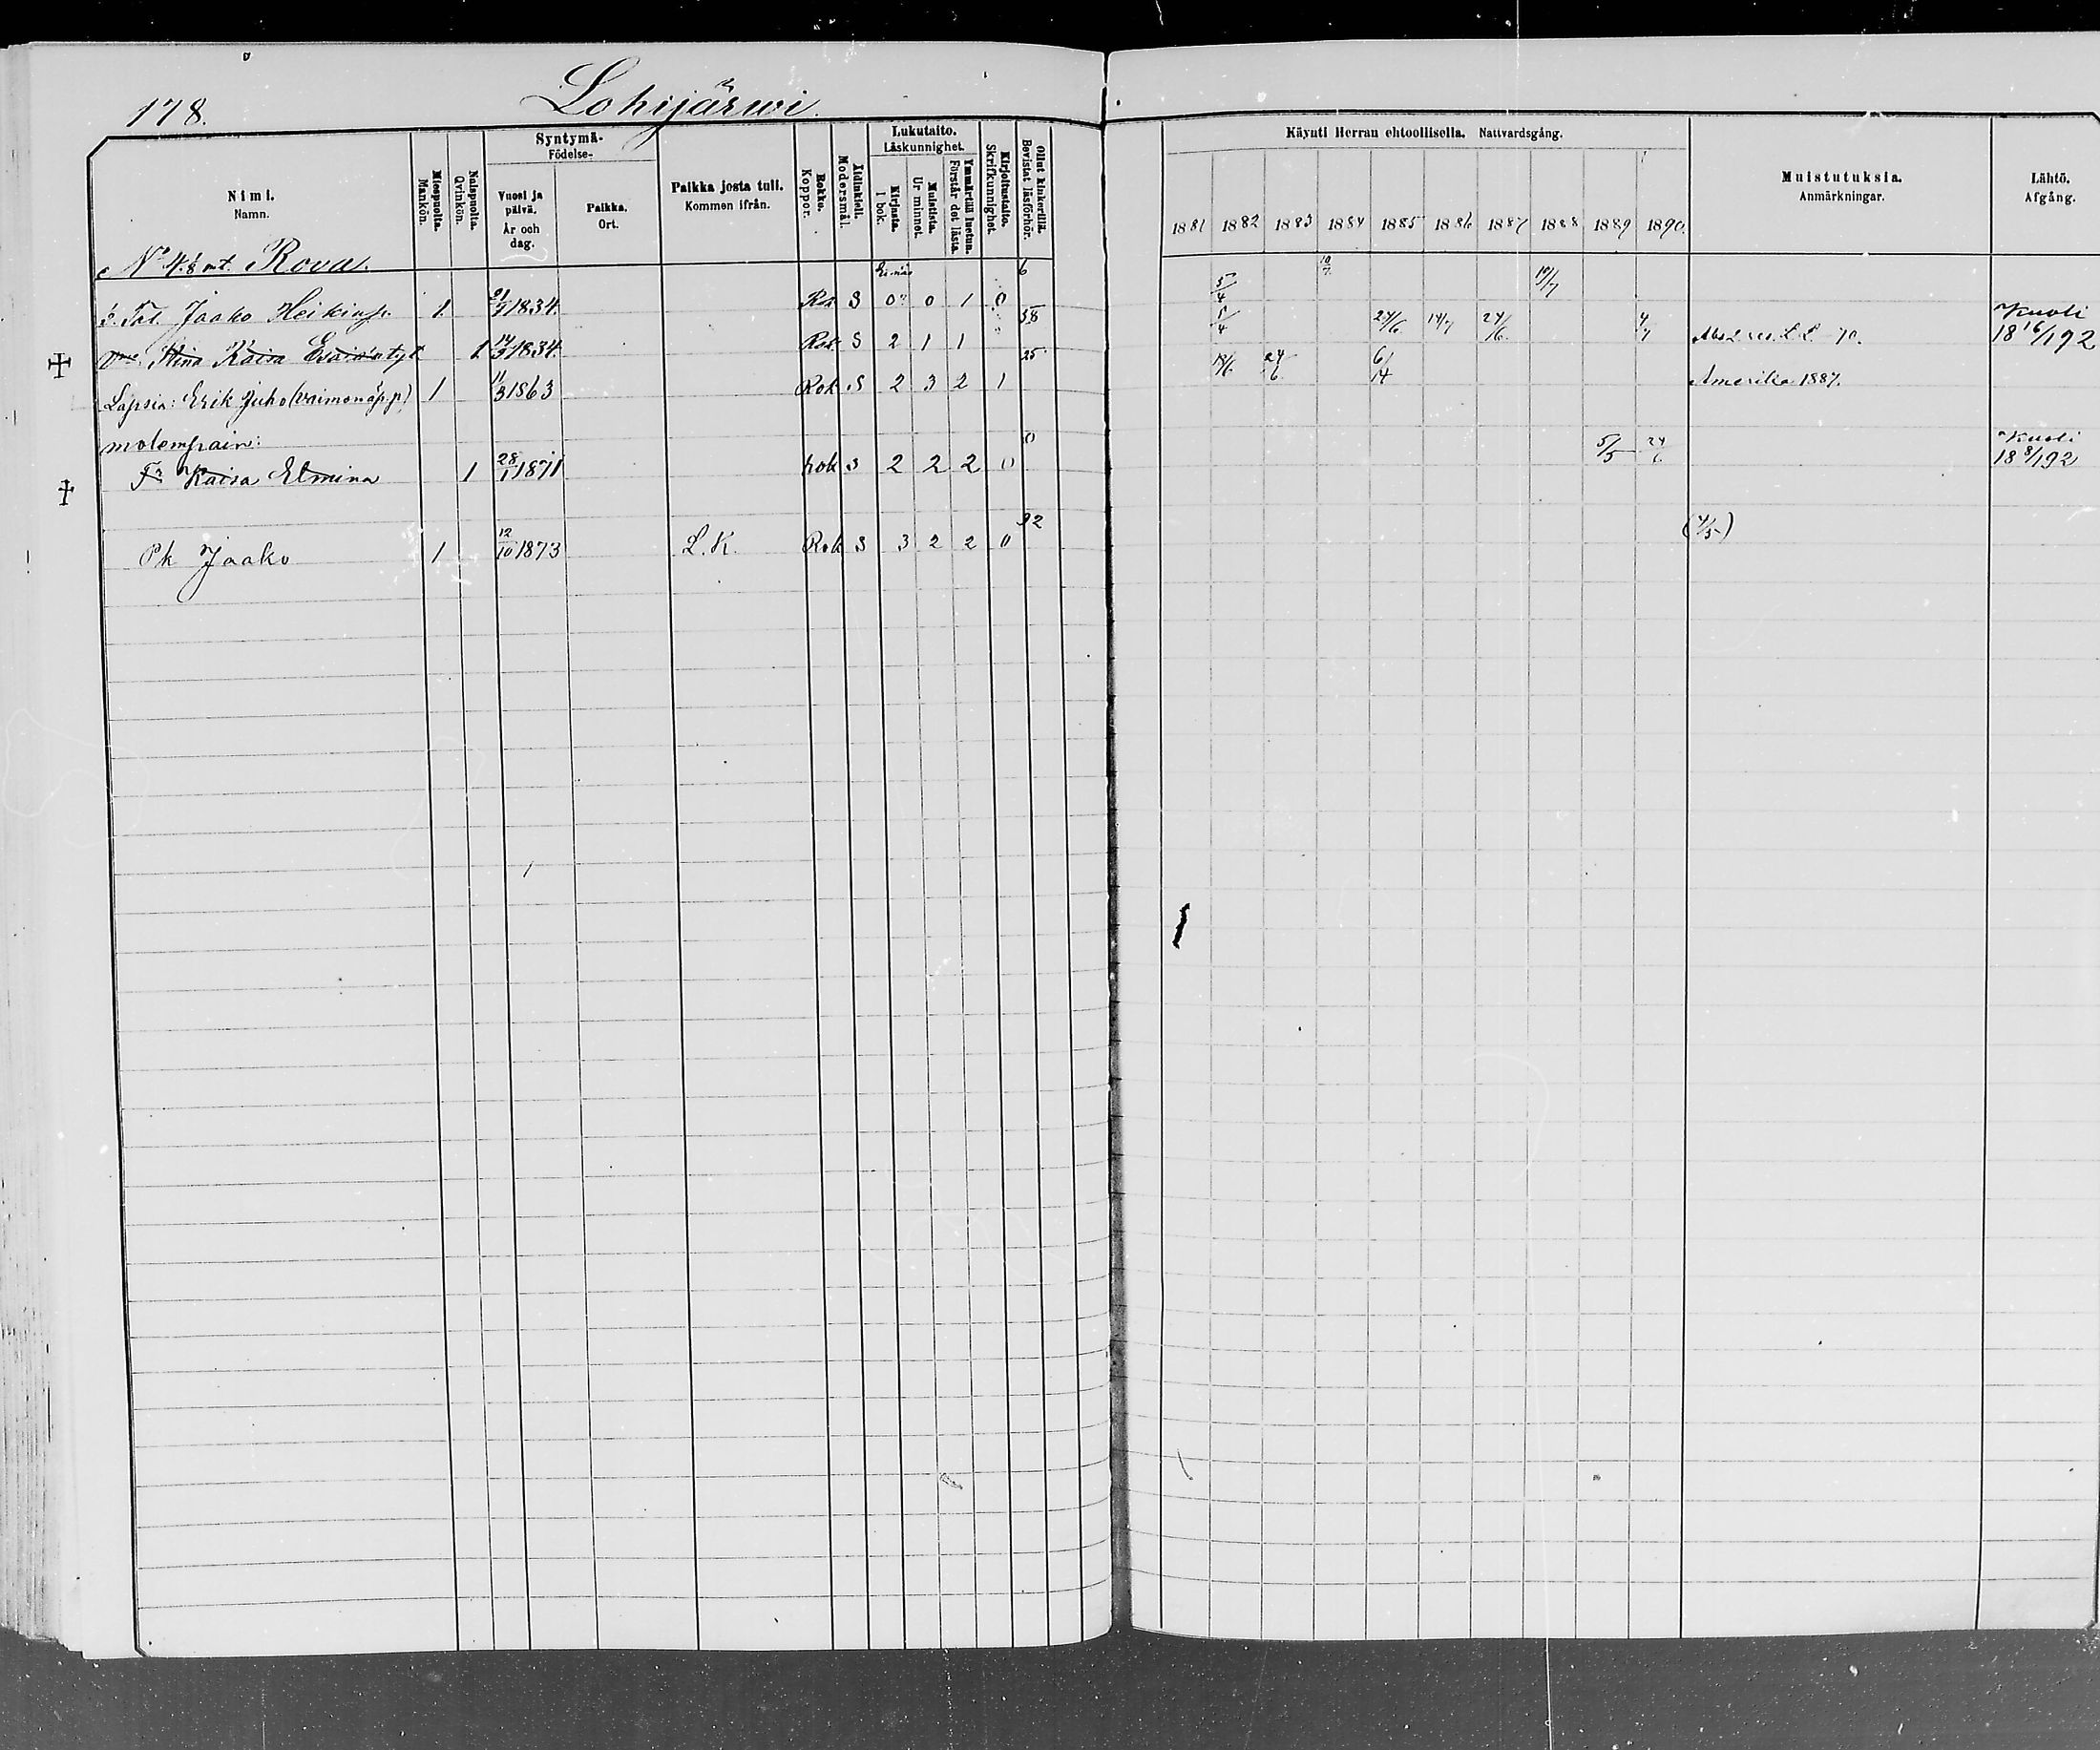 178.
Lohijärwi.
Nimi. Namn.
Miespuolta. Mankön.
Naispuolta. Qvinkön.
Syntymä- Födelse-
Vuosi ja päivä. År och dag.
Paikka. Ort.
Paikka josta tuli. Kommen ifrån.
Rokko. Koppor.
Äidinkieli. Modersmål.
Lukutaito. Läskunnighet.
Kirjasta. I bok.
Muistista. Ur minnet.
Ymmärtää luetun. Förstår det lästa.
Kirjoitustaito. Skrifkunnighet.
Ollut kinkerillä. Bevistat läsförhör.
Käynti Herran ehtoollisella. Nattvardsgång.
1881 1882 1883 1884 1885 1886 1887 1888 1889 1890.
Muistutuksia. Anmärkningar.
Lähtö. Afgång.
No 4. 1/8 mt. Rova.
Tal. Jaako Heikinp. 1. 1834. Rok S 0 0 1 0 6 5/4 10/7 19/7
Stina Kaisa Esaiaantyt 1 1834. Rok S 2 1 1 38 5/4 24/6 14/7 24/6 4/7 70. Kuoli 18 16/1 92
Lapsia: Erik Juho (vaimon äp. p) 1 11/3 1863 Rok S 2 3 2 1 25 24/6 Amerika 1887.
molempain:
Tr Kaisa Elmina 1 28/1 1871 rok s 2 2 2 0 0 5/5 24/6 Kuoli 18 8/1 92
Pk Jaako 1 12/10 1873 L. K. Rok S 3 2 2 0 32 (4/5)